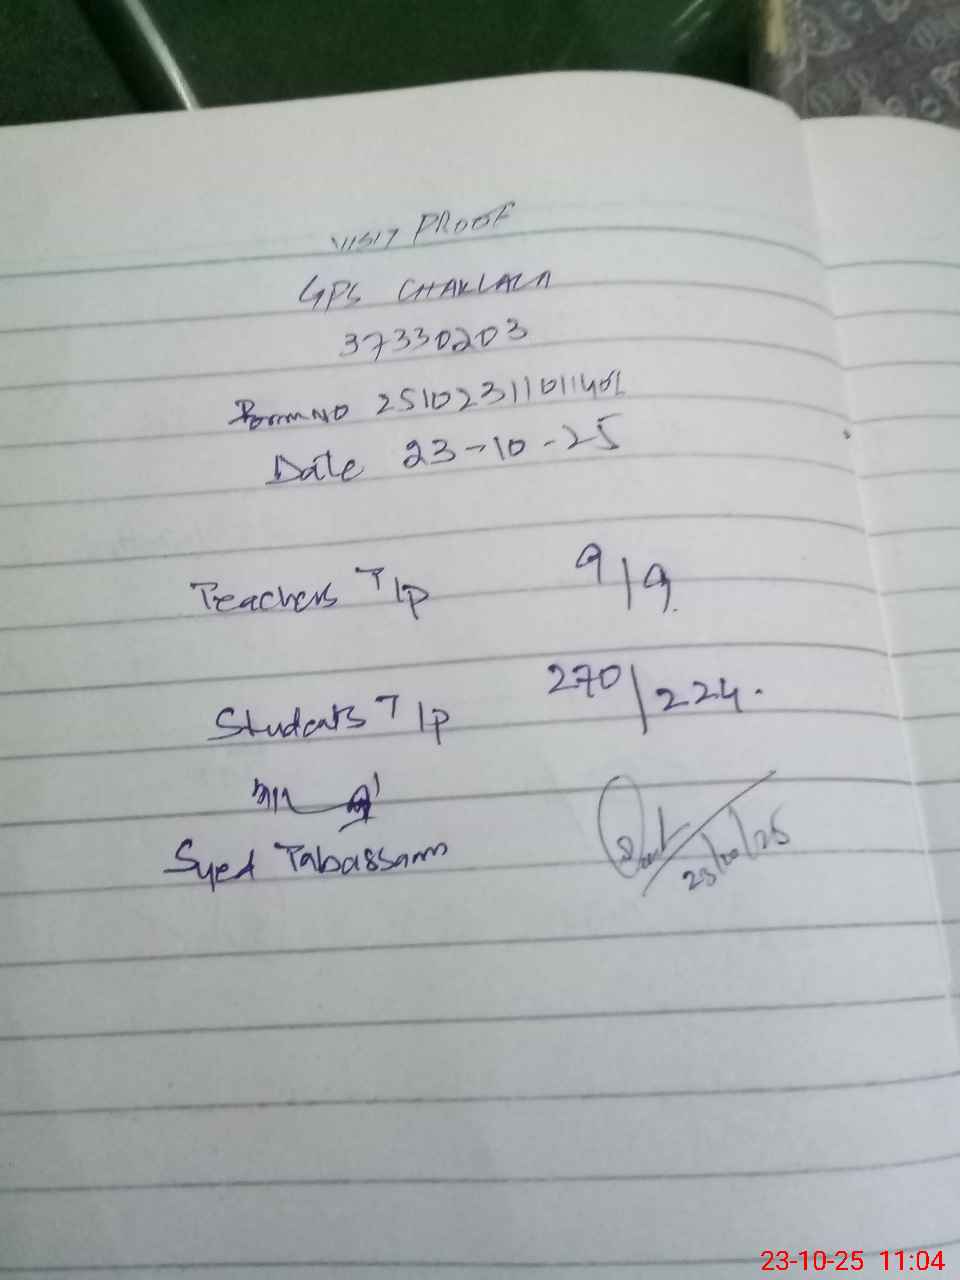 VISIT PROOF
GPS CHAKLALA
37330203
Form NO 25102311011401
Date 23-10-25
Teachers T/P 9/9.
Students T/P 270/224.
Syed Tabassam
23/10/25
23-10-25 11:04